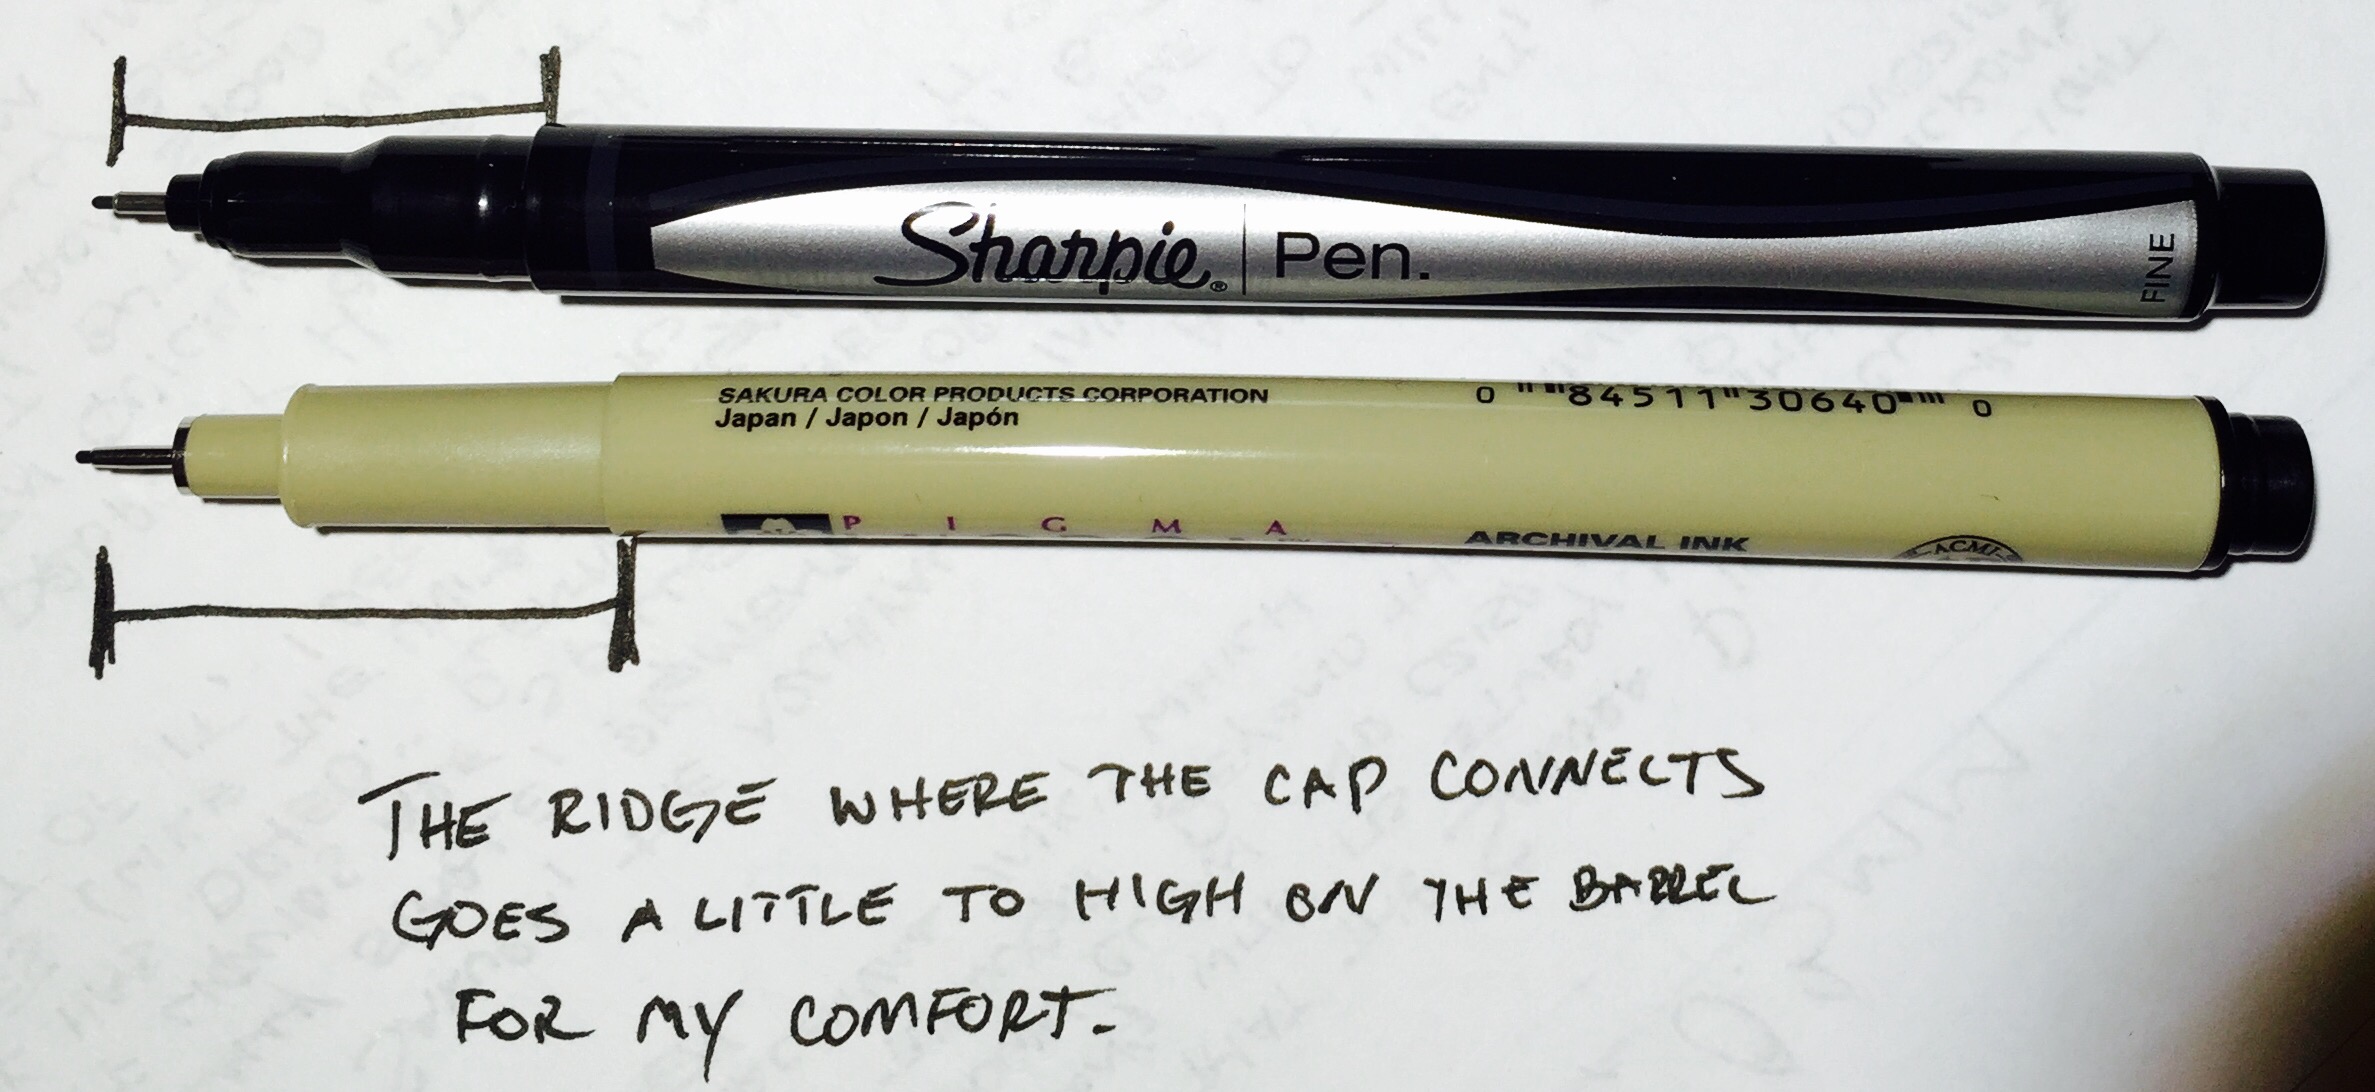 Sharpie® | Pen.
FINE
SAKURA COLOR PRODUCTS CORPORATION
Japan / Japon / Japón
0 84511 30640 0
PIGMA
ARCHIVAL INK
ACMI
THE RIDGE WHERE THE CAP CONNECTS
GOES A LITTLE TO HIGH ON THE BARREL
FOR MY COMFORT.